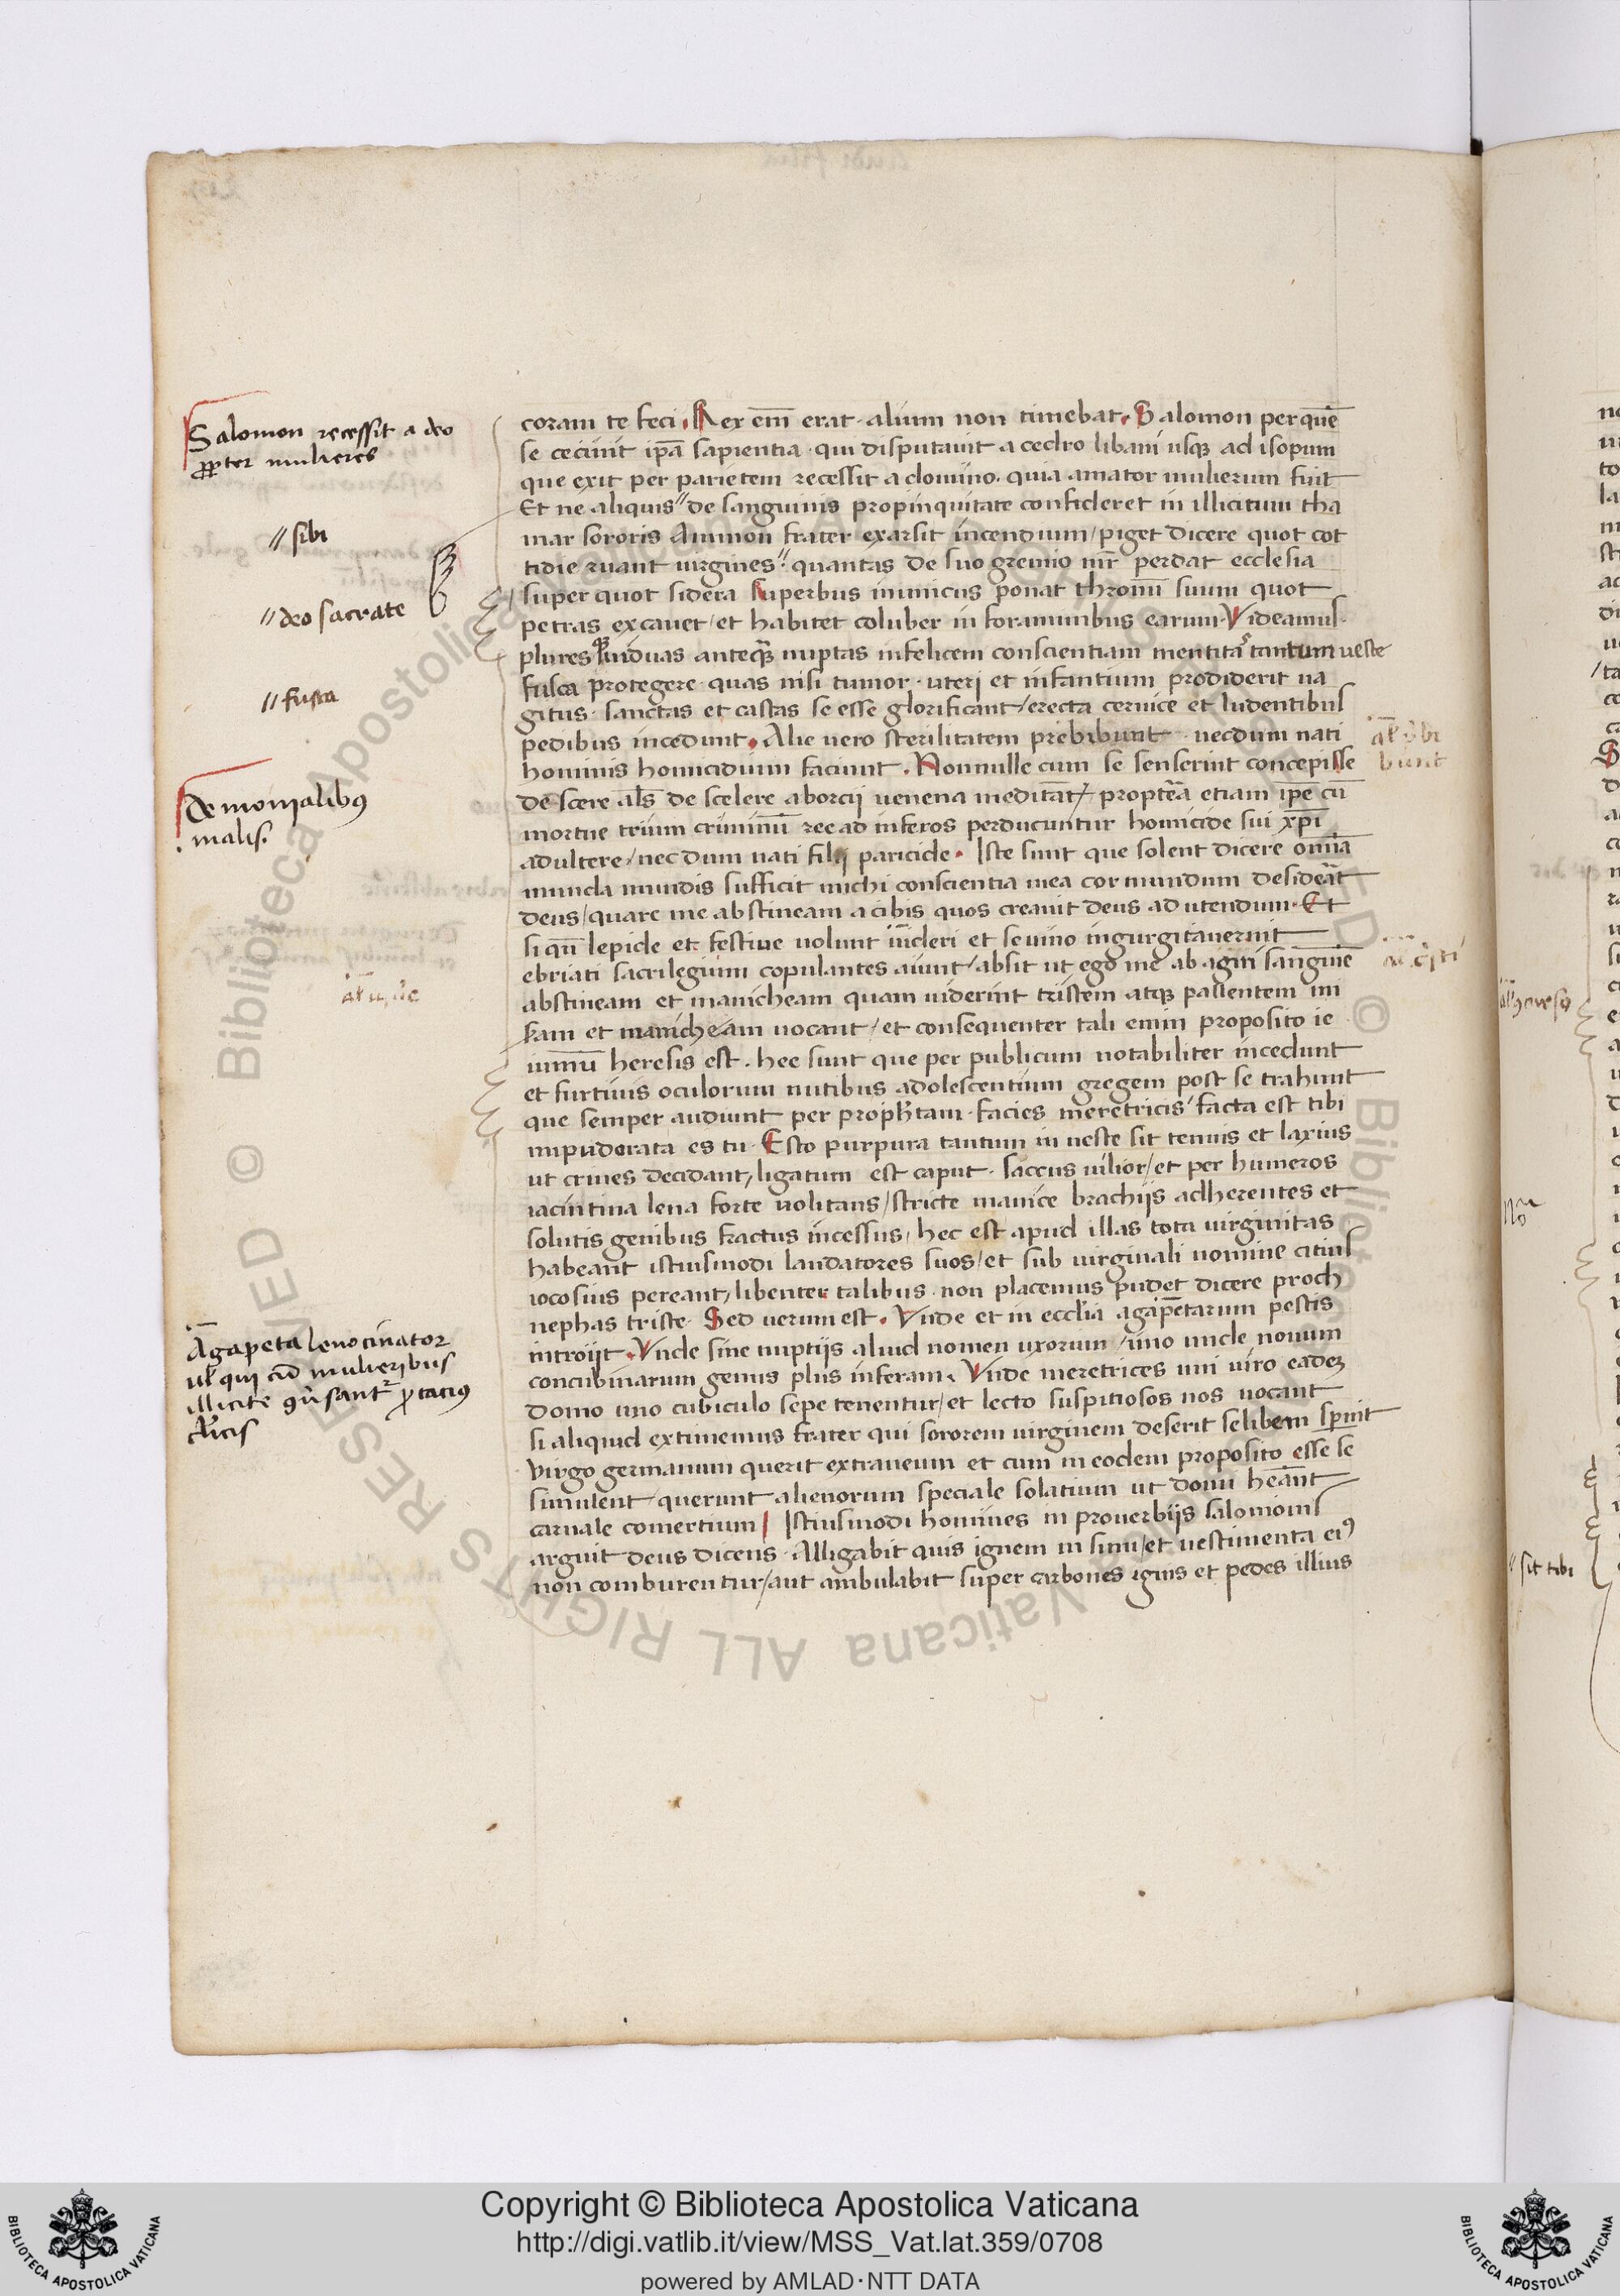 Salomon recessit a deo
propter mulieres
// sibi
// deo sacrate
// fusca
de monialibus
malis.
Agapeta lenocinator
vel qui cum mulieribus
illicite
clericis
coram te feci. Rex em̄ erat alium non timebat. Salomon per quē
se cecinit ip̄a sapientia qui disputauit a cedro libani usq; ad isopum
que exit per parietem recessit a domino. quia amator mulierum fuit
Et ne aliquis // de sanguinis propinquitate confideret in illicitum tha
mar sororis Ammon frater exarsit incendium / piget dicere quot cot
tidie ruant virgines // quantas de suo gremio mr̄ perdat ecclesia
super quot sidera superbus inimicus ponat thronū suum quot
petras excauet / et habitet coluber in foraminibus earum. Videamus
plures viduas anteq̄ nuptas infelicem conscientiam mentita tantum ueste
fulca protegere quas nisi tumor uteri et infantium prodiderit ua
gitus sanctas et castas se esse glorificant / erecta ceruice et ludentibus
pedibus incedunt. Alie uero sterilitatem prebibunt necdum nati
hominis homicidium faciunt. Nonnulle cum se senserint concepisse
de scere als̄ de scelere aborcij uenena meditāt̄ propterā etiam ip̄e cū
mortue trium criminū ree ad inferos perducuntur homicide sui xp̄i
adultere / nec dum nati filij paricide. Iste sunt que solent dicere omīa
munda mundis sufficit michi conscientia mea cor mundum desiderāt
deus / quare me abstineam a cibis quos creauit deus ad utendum. Et
si qn̄ lepide et festiue uolunt uideri et se uino ingurgitauerint
ebriati sacrilegium copulantes aiunt / absit ut ego me ab agni sanguīe
abstineam et manicheam quam uiderint tristem atq; pallentem mi
kam et manicheam uocant / et consequenter tali enim proposito ie
iuniū heresis est. hee sunt que per publicum notabiliter incedunt
et furtiuis oculorum nutibus adolescentium gregem post se trahunt
que semper audiunt per proph̄tam facies meretricis facta est tibi
impudorata es tu. Esto purpura tantum in ueste sit tenuis et laxius
ut crines decidant, ligatum est caput. saccus uilior / et per humeros
iacintina lena forte uolitans / stricte manice brachijs adherentes et
solutis genibus fractus incessus, hec est apud illas tota uirginitas
habeant istiusmodi laudatores suos / et sub uirginali nomine citius
iocosius pereant, libenter talibus non placemus pudet dicere proch
nephas triste. Sed uerum est. Vnde et in ecclīa agapetarum pestis
introijt. Vnde sine nuptijs aliud nomen uxorum / imo unde nouum
concubinarum genus plus inferam. Vnde meretrices uni uiro eadez
domo uno cubiculo sepe tenentur / et lecto suspitiosos nos uocant
si aliquid extimemus frater qui sororem uirginem deserit selibem sp̄nit
virgo germanum querit extraneum et cum in eodem proposito esse se
simulent querunt alienorum speciale solatium ut domi heānt
carnale comertium Istiusmodi homines in prouerbijs salomonis
arguit deus dicens. Alligabit quis ignem in sinu / et uestimenta ei9
non comburentur / aut ambulabit super carbones ignis et pedes illius
// sit tibi
Copyright © Biblioteca Apostolica Vaticana
http://digi.vatlib.it/view/MSS_Vat.lat.359/0708
powered by AMLAD·NTT DATA
BIBLIOTECA APOSTOLICA VATICANA
BIBLIOTECA APOSTOLICA VATICANA